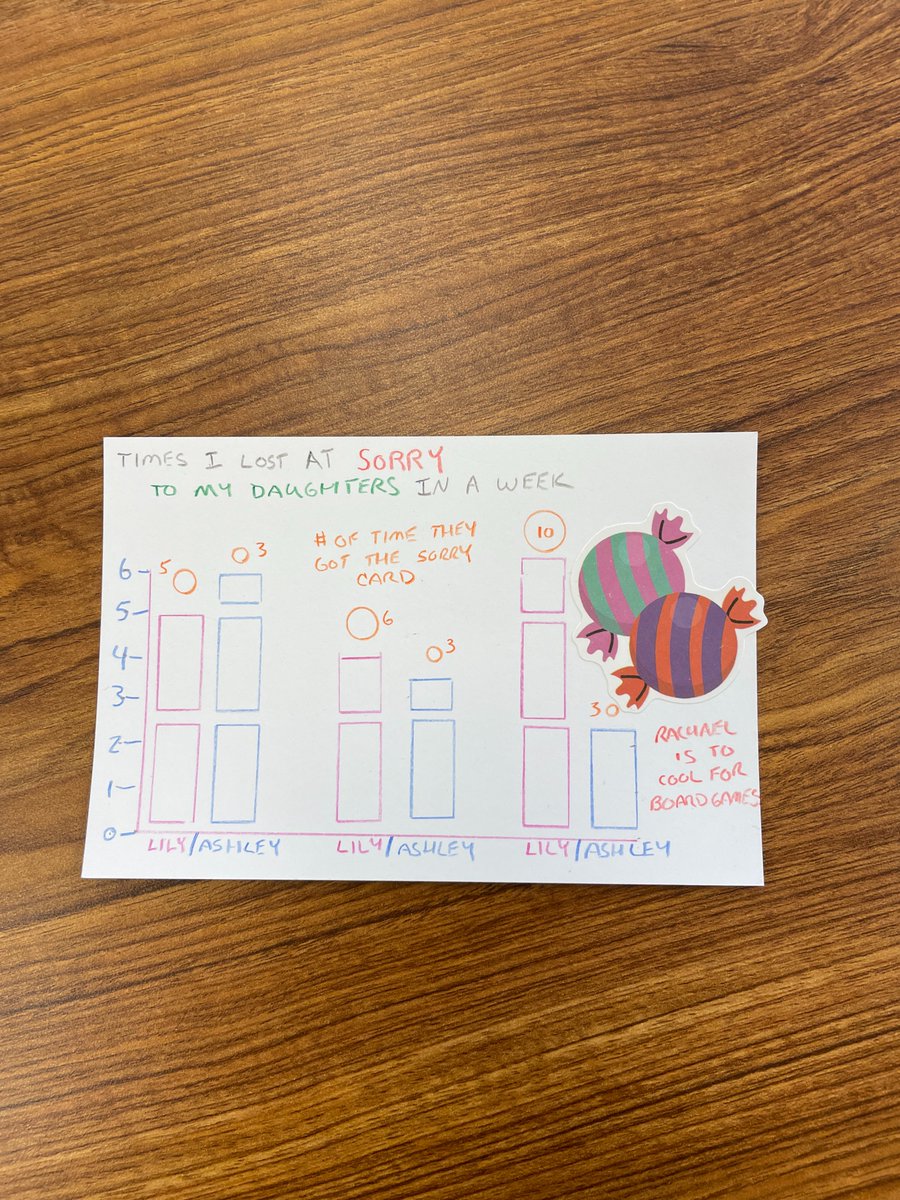 TIMES I LOST AT SORRY
TO MY DAUGHTERS IN A WEEK
# OF TIME THEY
GOT THE SORRY
CARD.
5
3
6
3
10
3
6
5
4
3
2
1
0
LILY/ASHLEY
LILY/ASHLEY
LILY/ASHLEY
RACHAEL
IS TO
COOL FOR
BOARDGAMES